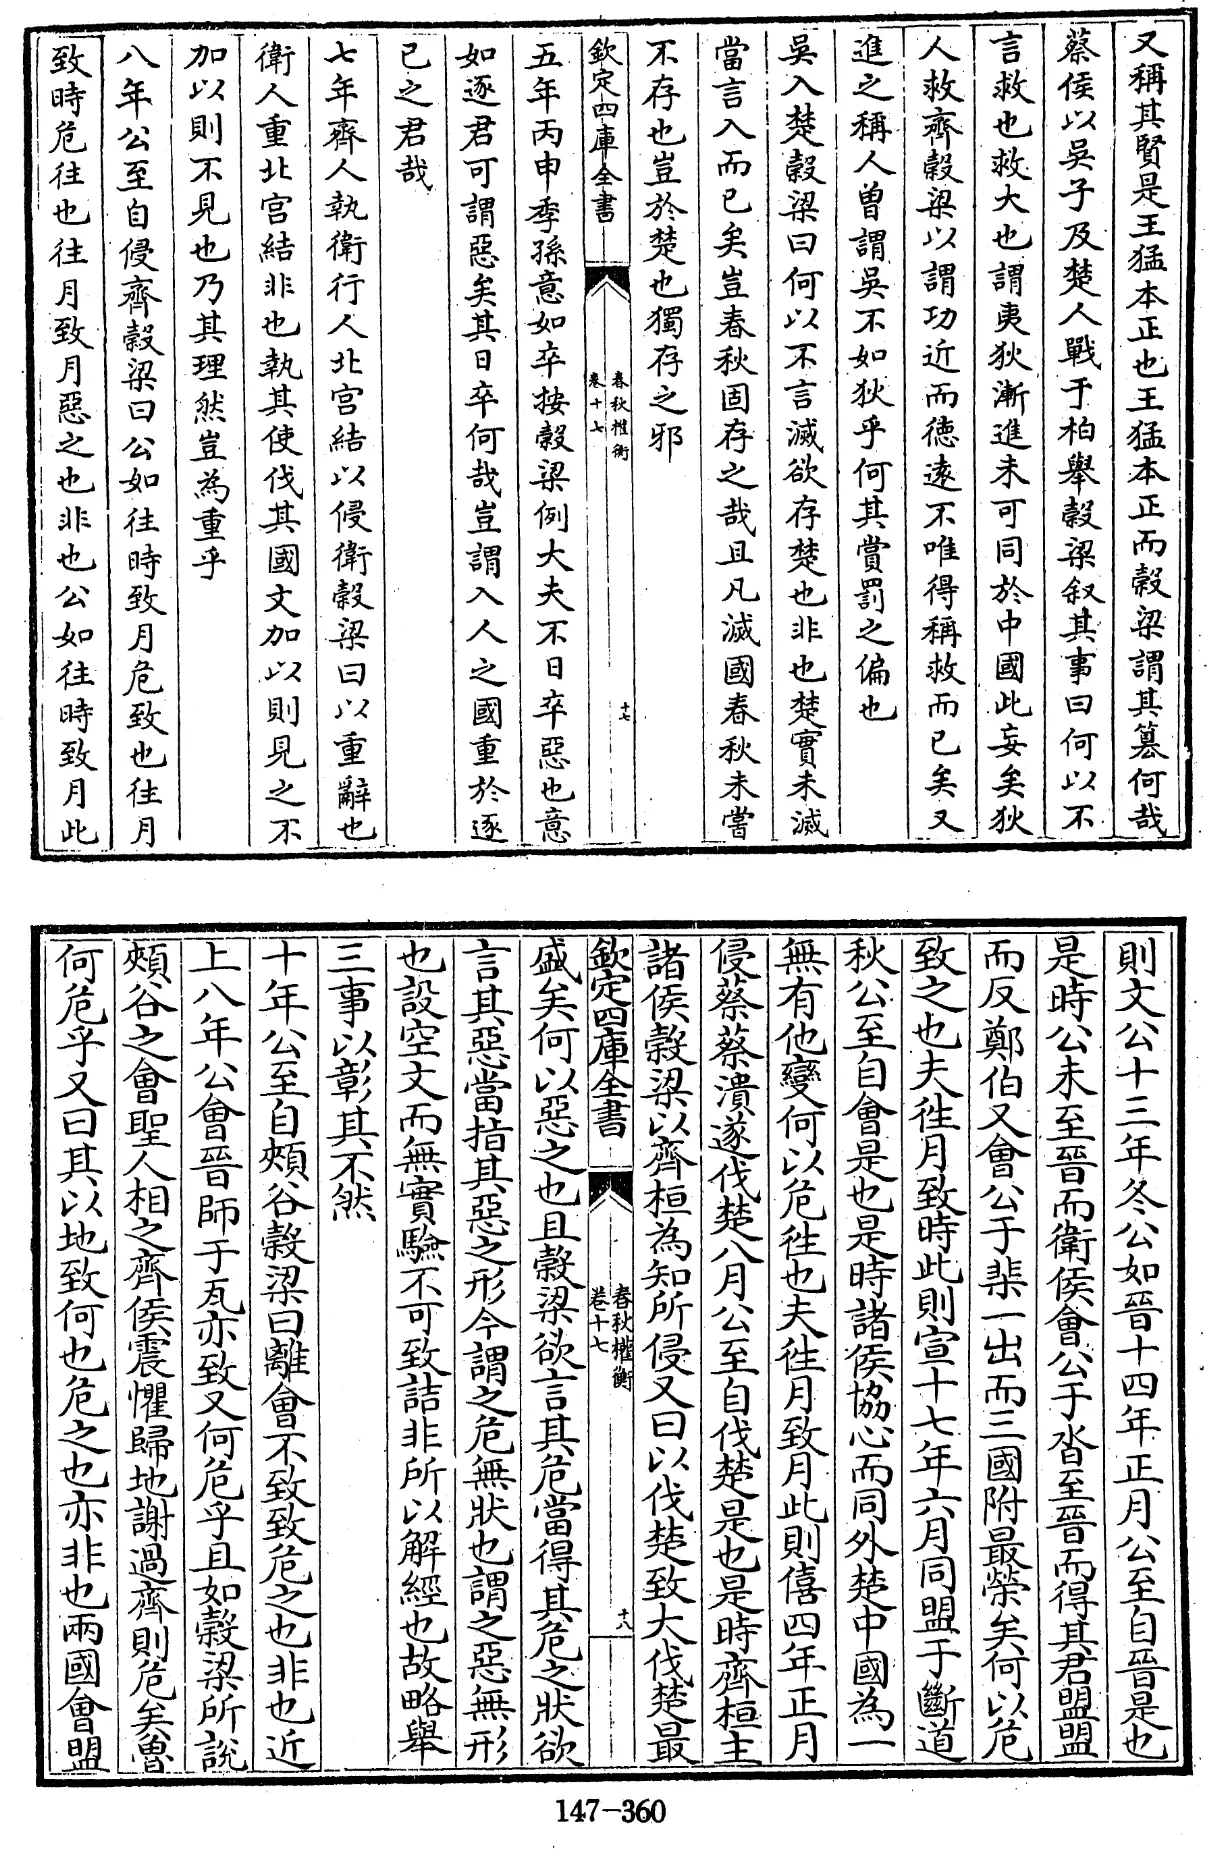 又稱其賢是王猛本正也王猛本正而穀梁謂其篡何哉
蔡侯以吳子及楚人戰于柏舉穀梁叙其事曰何以不
言救也救大也謂夷狄漸進未可同於中國此妄矣狄
人救齊穀梁以謂功近而德遠不唯得稱救而已矣又
進之稱人曽謂吳不如狄乎何其賞罰之偏也
吳入楚穀梁曰何以不言滅欲存楚也非也楚實未滅
當言入而已矣豈春秋固存之哉且凡滅國春秋未嘗
不存也豈於楚也獨存之邪
欽定四庫全書
春秋權衡
卷十七
十七
五年丙申季孫意如卒按穀梁例大夫不日卒惡也意
如逐君可謂惡矣其日卒何哉豈謂入人之國重於逐
已之君哉
七年齊人執衛行人北宮結以侵衛穀梁曰以重辭也
衛人重北宮結非也執其使伐其國文加以則見之不
加以則不見也乃其理然豈為重乎
八年公至自侵齊穀梁曰公如往時致月危致也往月
致時危往也往月致月惡之也非也公如往時致月此
則文公十三年冬公如晉十四年正月公至自晉是也
是時公未至晉而衛侯會公于沓至晉而得其君盟盟
而反鄭伯又會公于棐一出而三國附最榮矣何以危
致之也夫徃月致時此則宣十七年六月同盟于斷道
秋公至自會是也是時諸侯協心而同外楚中國為一
無有他變何以危徃也夫徃月致月此則僖四年正月
侵蔡蔡潰遂伐楚八月公至自伐楚是也是時齊桓主
諸侯穀梁以齊桓為知所侵又曰以伐楚致大伐楚最
欽定四庫全書
春秋權衡
卷十七
十八
盛矣何以惡之也且穀梁欲言其危當得其危之狀欲
言其惡當指其惡之形今謂之危無狀也謂之惡無形
也設空文而無實驗不可致詰非所以解經也故略舉
三事以彰其不然
十年公至自頰谷穀梁曰離會不致致危之也非也近
上八年公會晉師于瓦亦致又何危乎且如穀梁所說
頰谷之會聖人相之齊侯震懼歸地謝過齊則危矣魯
何危乎又曰其以地致何也危之也亦非也兩國會盟
147-360